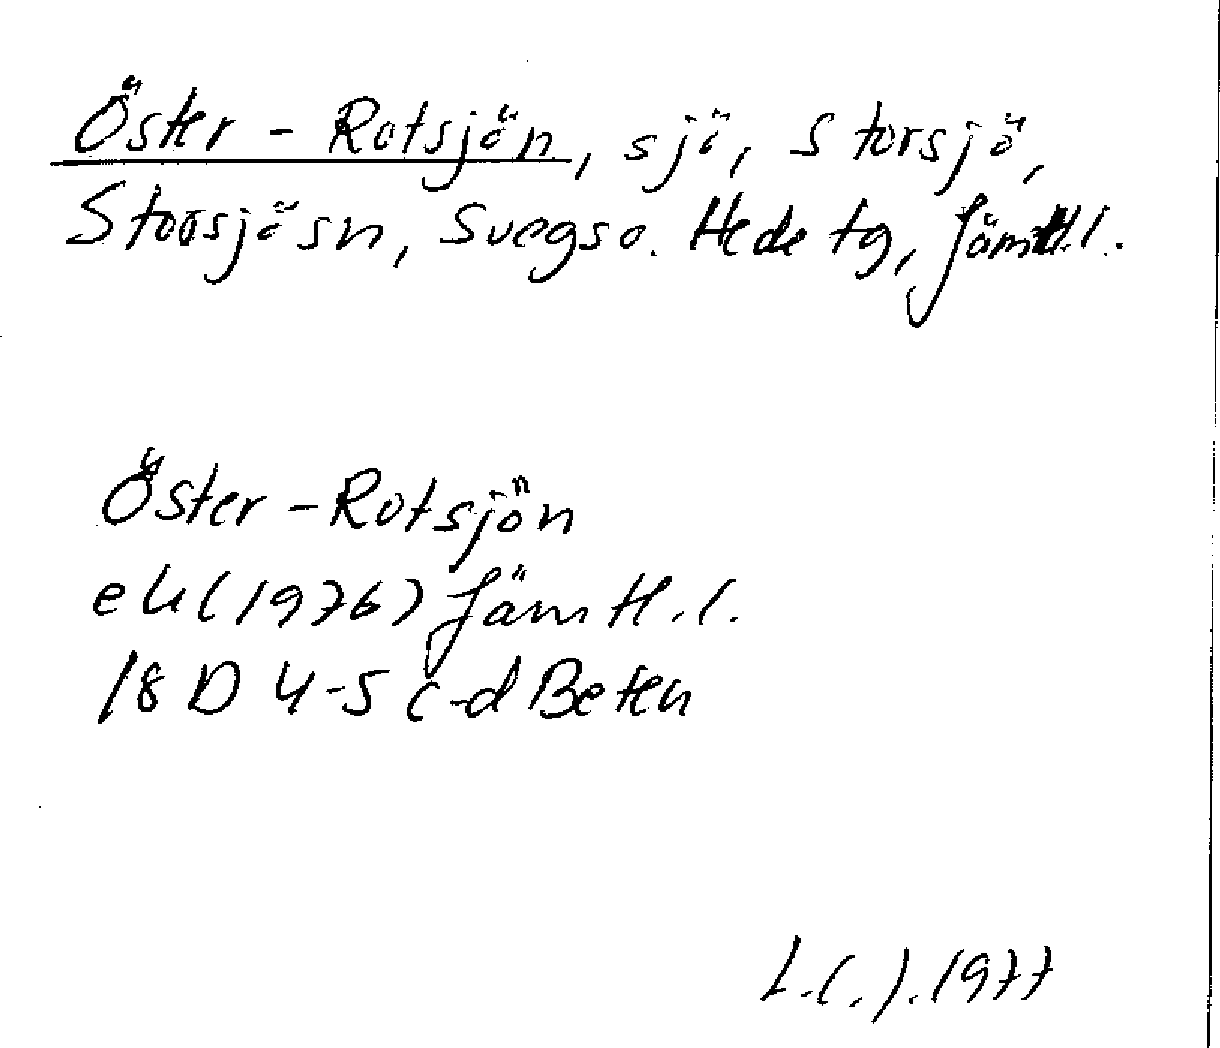 Öster-Rotsjön, sjö, Storsjö,
Storsjösn, Svegs o. Hede tg, Jämtl.l.
Öster-Rotsjön
ek (1976) Jämtl.l.
18 D 4-5 c-d Beten
L.(.).1977